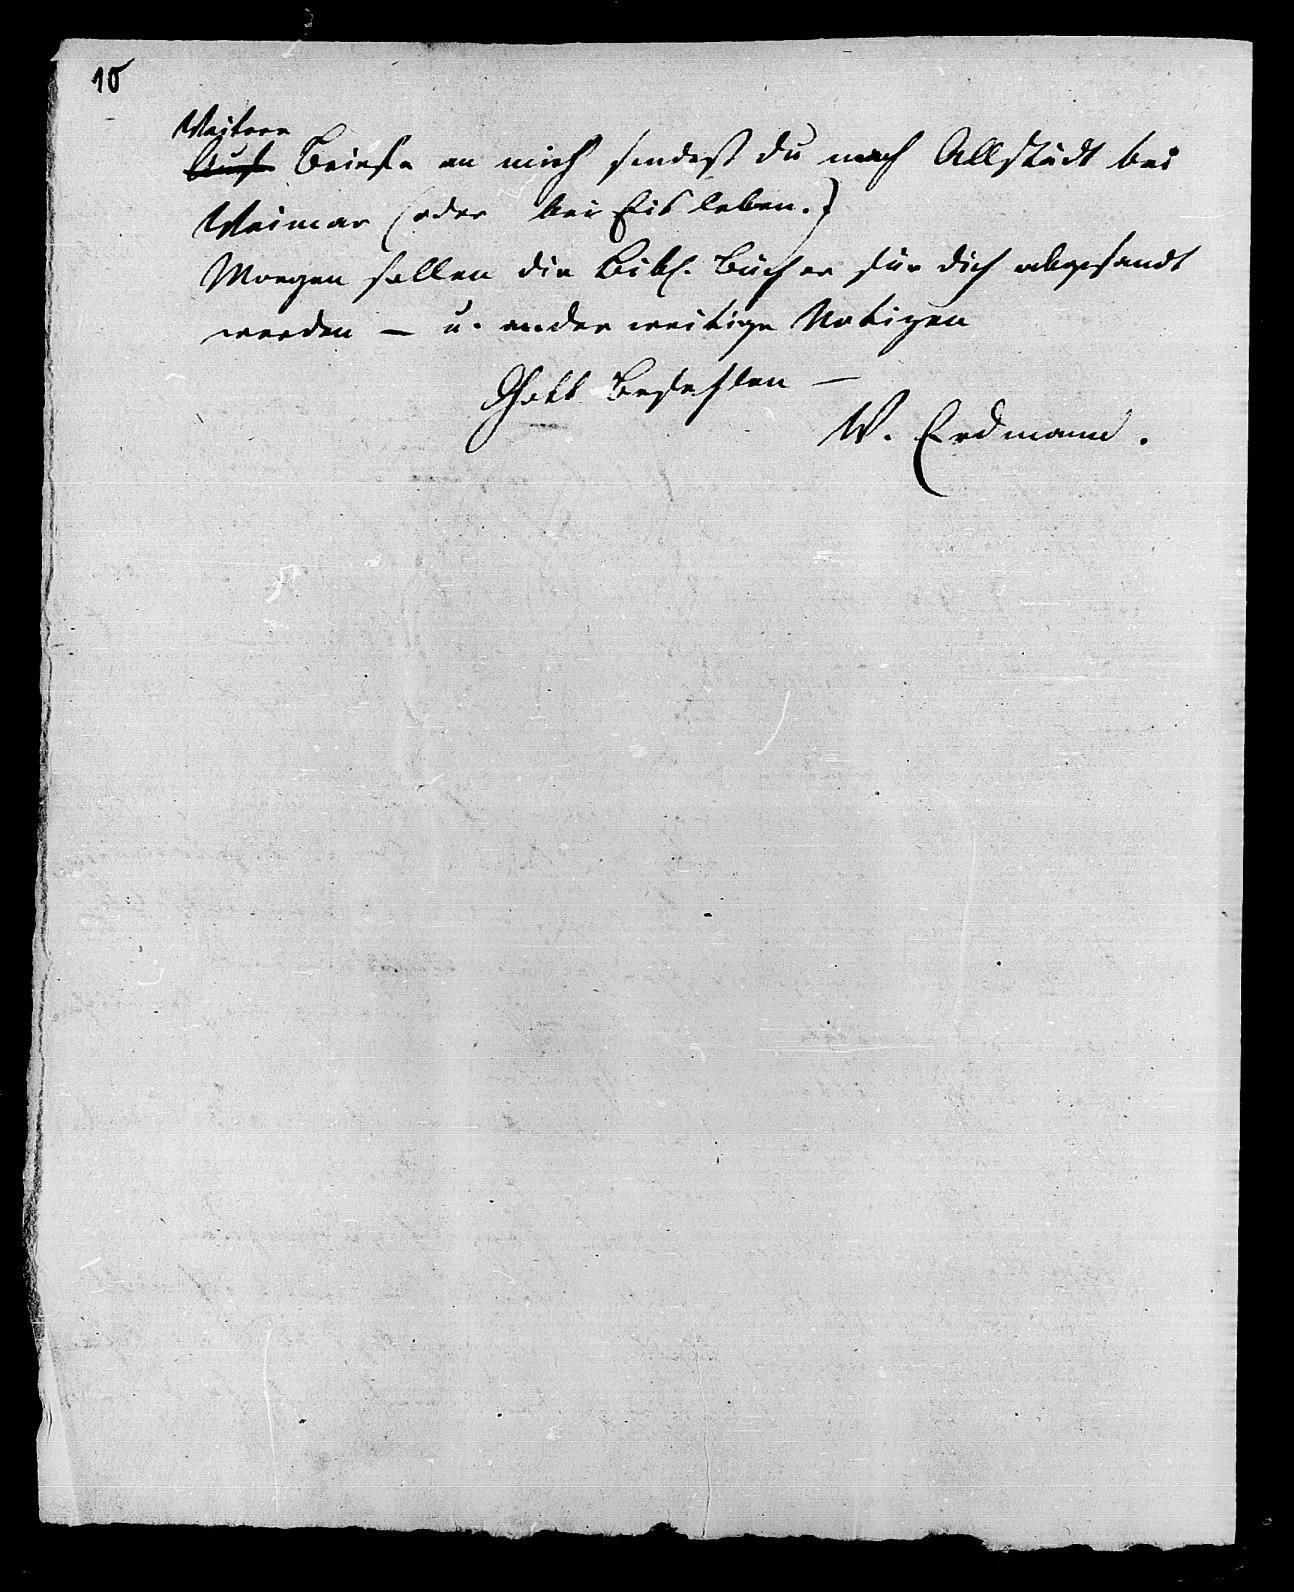 10
Weitere
Auch Briefe an mich sendest du nach Allstädt bei
Weimar (oder bei Eisleben.)
Morgen sollen die Bibl. Bücher für dich abgesandt
werden — u. anderweitige Notizen
Gott Befohlen —
W. Erdmann.